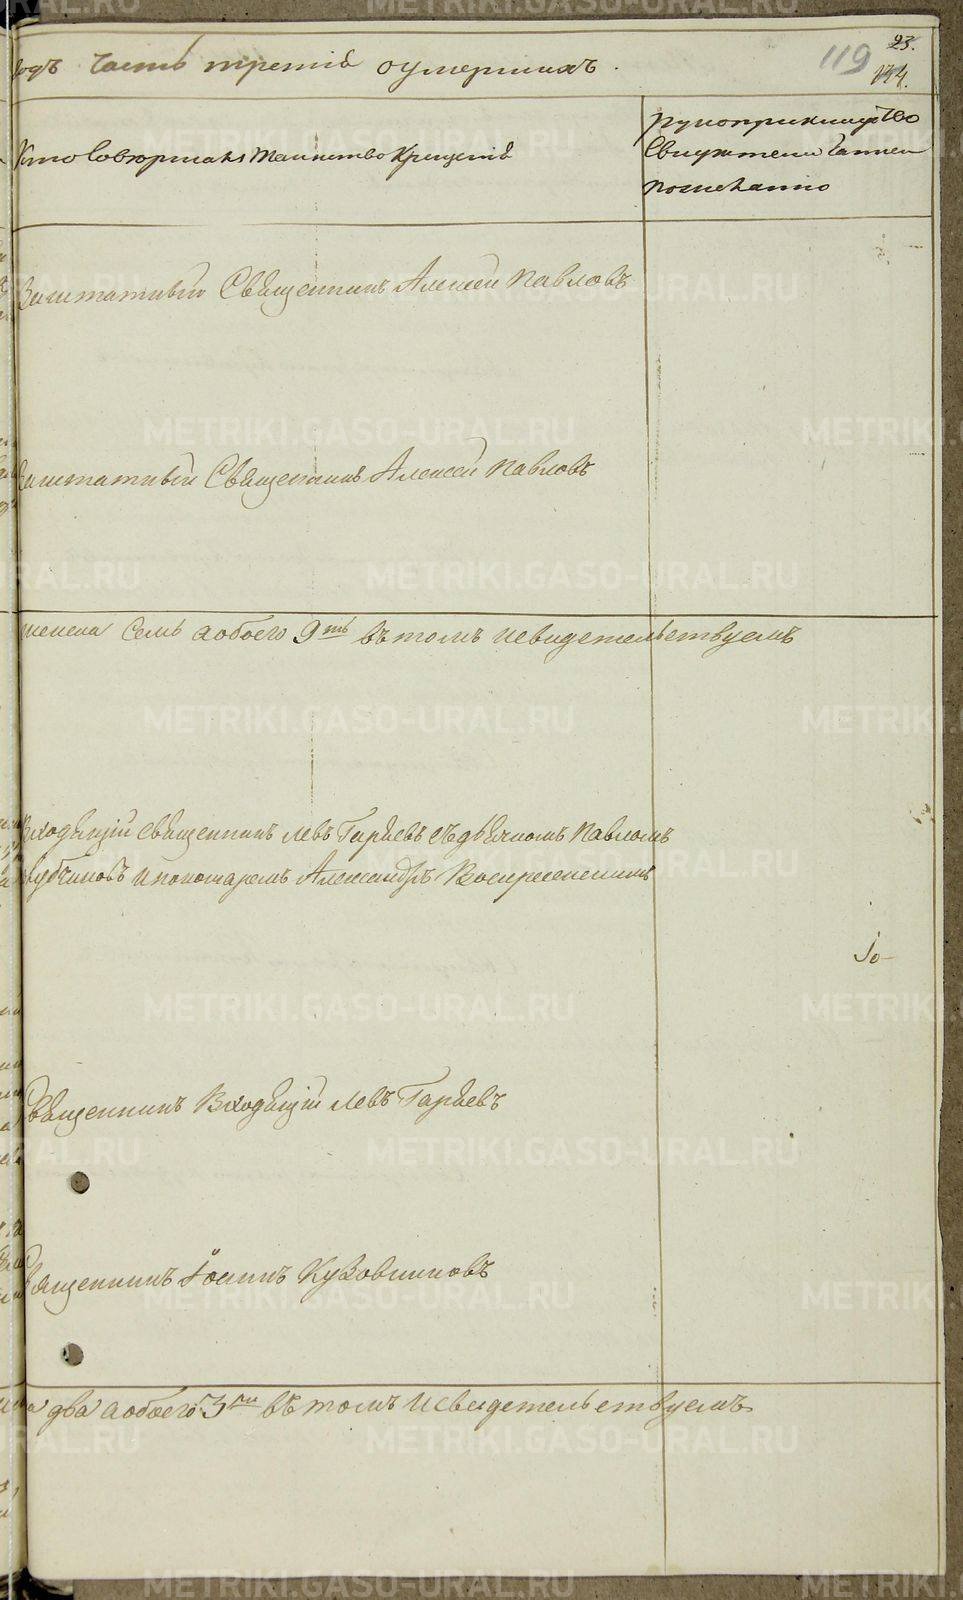 23.
119
годъ Часть третія оумершихъ.
134.
Кто Совершалъ Таинство Крещенія
рукоприкладство
Свидетелей
по желанию
Заштатный Священникъ Алексей Павловъ
Заштатный Священникъ Алексей Павловъ
женска Семь аобоего 9ть въ томъ исвидетельствуемъ
Входящій священникъ Левъ Гаряевъ съ дьячкомъ Павломъ
и пономаремъ Александръ Воскресенскимъ
Священникъ Входящій Левъ Гаряевъ
Священникъ Іоаннъ Кузовниковъ
два аобоего 3 въ томъ исвидетельствуемъ
METRIKI.GASO-URAL.RU